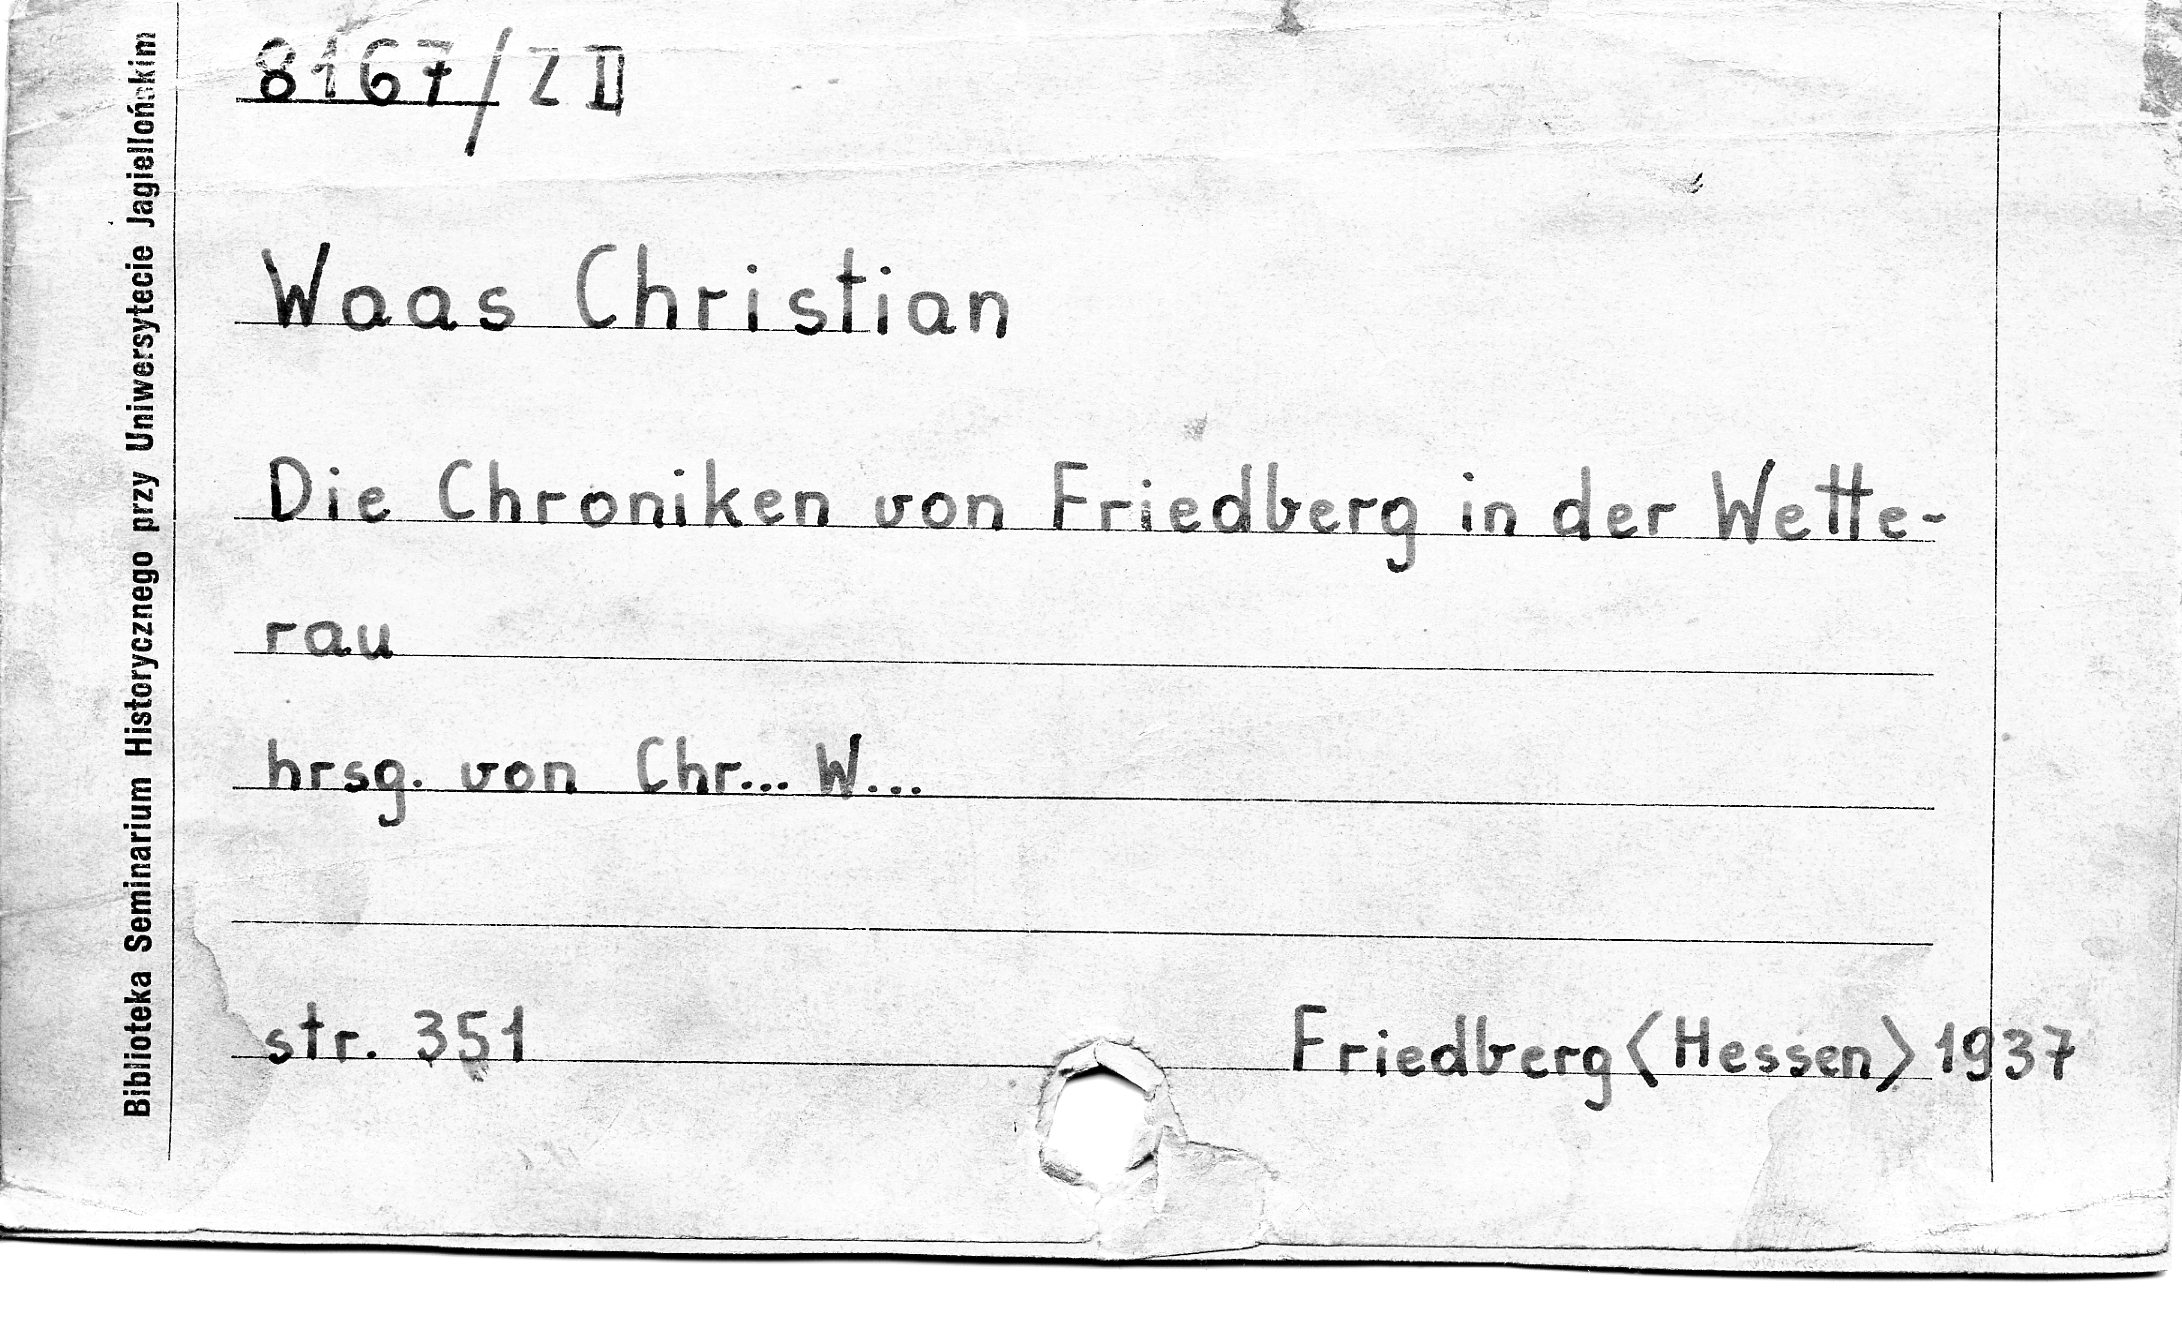 8167/ZD
Waas Christian
Die Chroniken von Friedberg in der Wette-
rau
hrsg. von Chr... W...
str. 351 Friedberg〈Hessen〉1937
Biblioteka Seminarium Historycznego przy Uniwersytecie Jagiellońskim